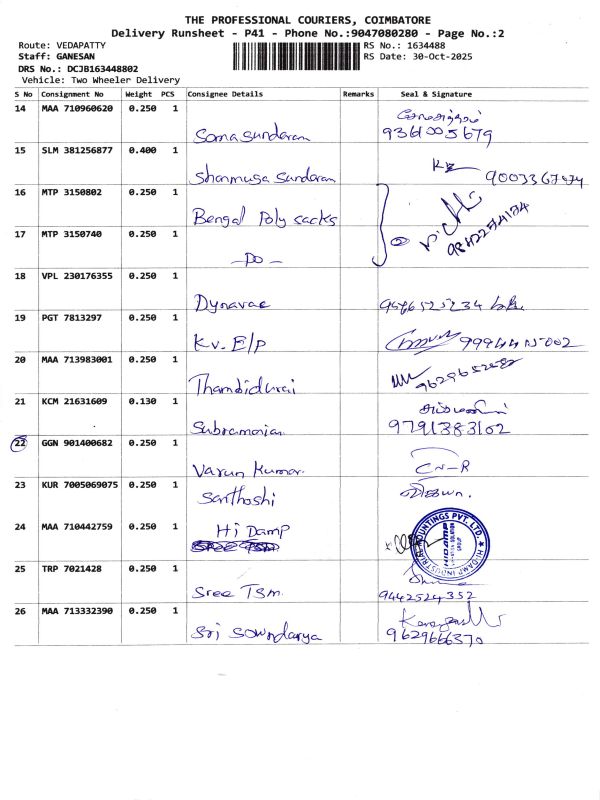 THE PROFESSIONAL COURIERS, COIMBATORE
Delivery Runsheet - P41 - Phone No.:9047080280 - Page No.:2
Route: VEDAPATTY
RS No.: 1634488
Staff: GANESAN
RS Date: 30-Oct-2025
DRS No.: DCJB163448802
Vehicle: Two Wheeler Delivery
S No Consignment No Weight PCS Consignee Details Remarks Seal & Signature
14 MAA 710960620 0.250 1 Somasundaram 9361005679
15 SLM 381256877 0.400 1 Shanmuga Sundaram
16 MTP 3150802 0.250 1 Bengal Poly sacks
17 MTP 3150740 0.250 1 -Do- 9842274174
18 VPL 230176355 0.250 1 Dynavac 9566525234
19 PGT 7813297 0.250 1 Kv. E/P
20 MAA 713983001 0.250 1 Thambidurai
21 KCM 21631609 0.130 1 Subramanian 9791383102
22 GGN 901400682 0.250 1 Varun Kumar
23 KUR 7005069075 0.250 1 Santhoshi
24 MAA 710442759 0.250 1 Hi Damp
HI-DAMP INDUSTRIAL MOUNTINGS PVT. LTD.
25 TRP 7021428 0.250 1 Sree TSM. 9442524352
26 MAA 713332390 0.250 1 Sri Sowndarya 9629666370